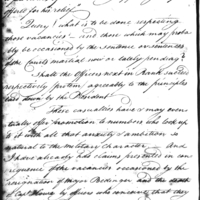 offered for his relief.
Query! what is to be done respecting
those vacancies – and those which may proba
bly be occasioned by the sentence or sentences
of the Courts martial now or lately pending?
Shall the Officers next in Rank in their
respectively parties agreeably to the principles
laid down by the President.
These casualties have or may even-
tually offer promotion to numbers who look up
to it with all that anxiety & ambition so
natural to the military Character. And
I have already has claims presented in con-
sequence of the vacancies occasioned by the
resignation of Major Bedinger and the
of Capt by officers who conceive that they